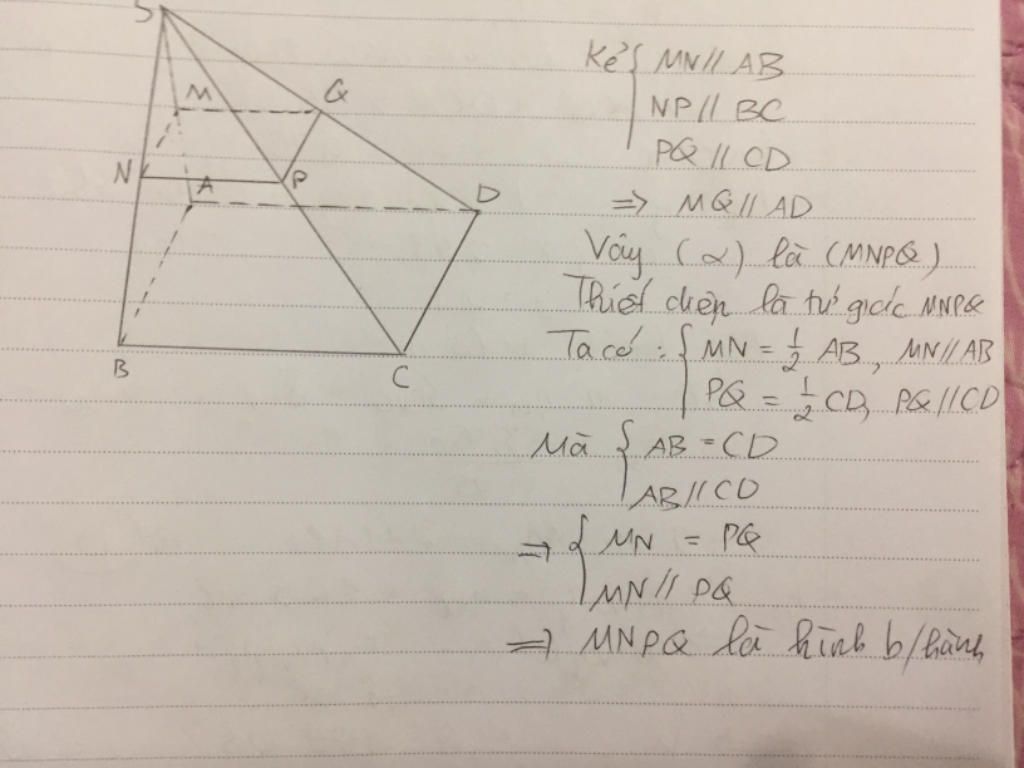 S
M
Q
N
A
P
D
B
C
Kẻ { MN // AB
NP // BC
PQ // CD
=> MQ // AD
Vậy (α) là (MNPQ)
Thiết diện là tứ giác MNPQ
Ta có : { MN = 1/2 AB, MN // AB
PQ = 1/2 CD, PQ // CD
Mà { AB = CD
AB // CD
=> { MN = PQ
MN // PQ
=> MNPQ là hình b/hành